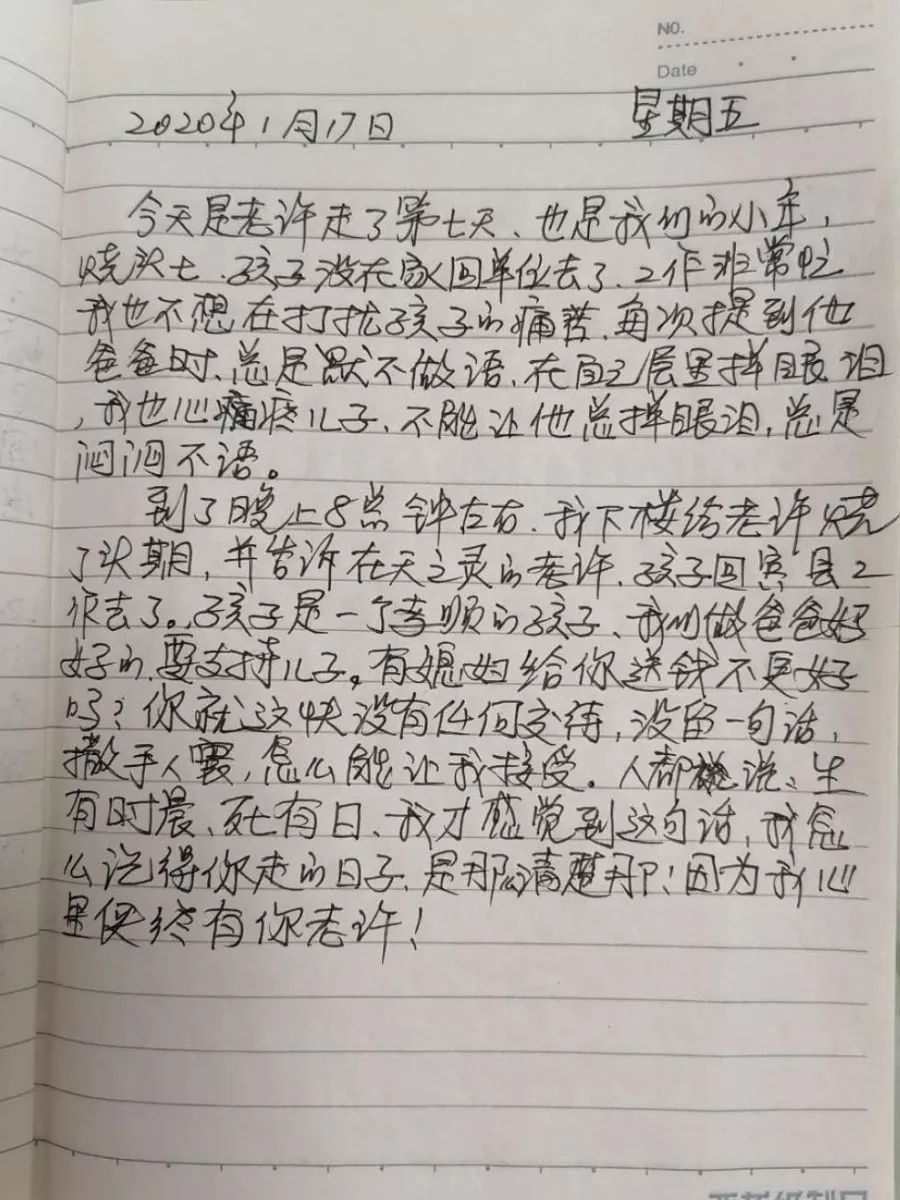 NO.
Date
2020年1月17日 星期五
今天是老许走了第七天、也是我们的小年,
烧头七.孩子没在家回单位去了.工作非常忙
我也不想在打扰孩子的痛苦.每次提到他
爸爸时、总是默不做语.在自己屋里掉眼泪
,我也心痛疼儿子.不能让他总掉眼泪,总是
闷闷不语。
到了晚上8点钟左右.我下楼给老许烧
了头期,并告诉在天之灵的老许.孩子回宾县工
作去了。孩子是一个孝顺的孩子、我们做爸爸好
好的.要支持儿子。有媳妇给你送钱不更好
吗?你就这快没有任何交待,没留一句话,
撒手人寰,怎么能让我接受。人都说:生
有时晨、死有日、我才感觉到这句话,我怎
么记得你走的日子.是那清楚那!因为我心
里使终有你老许!